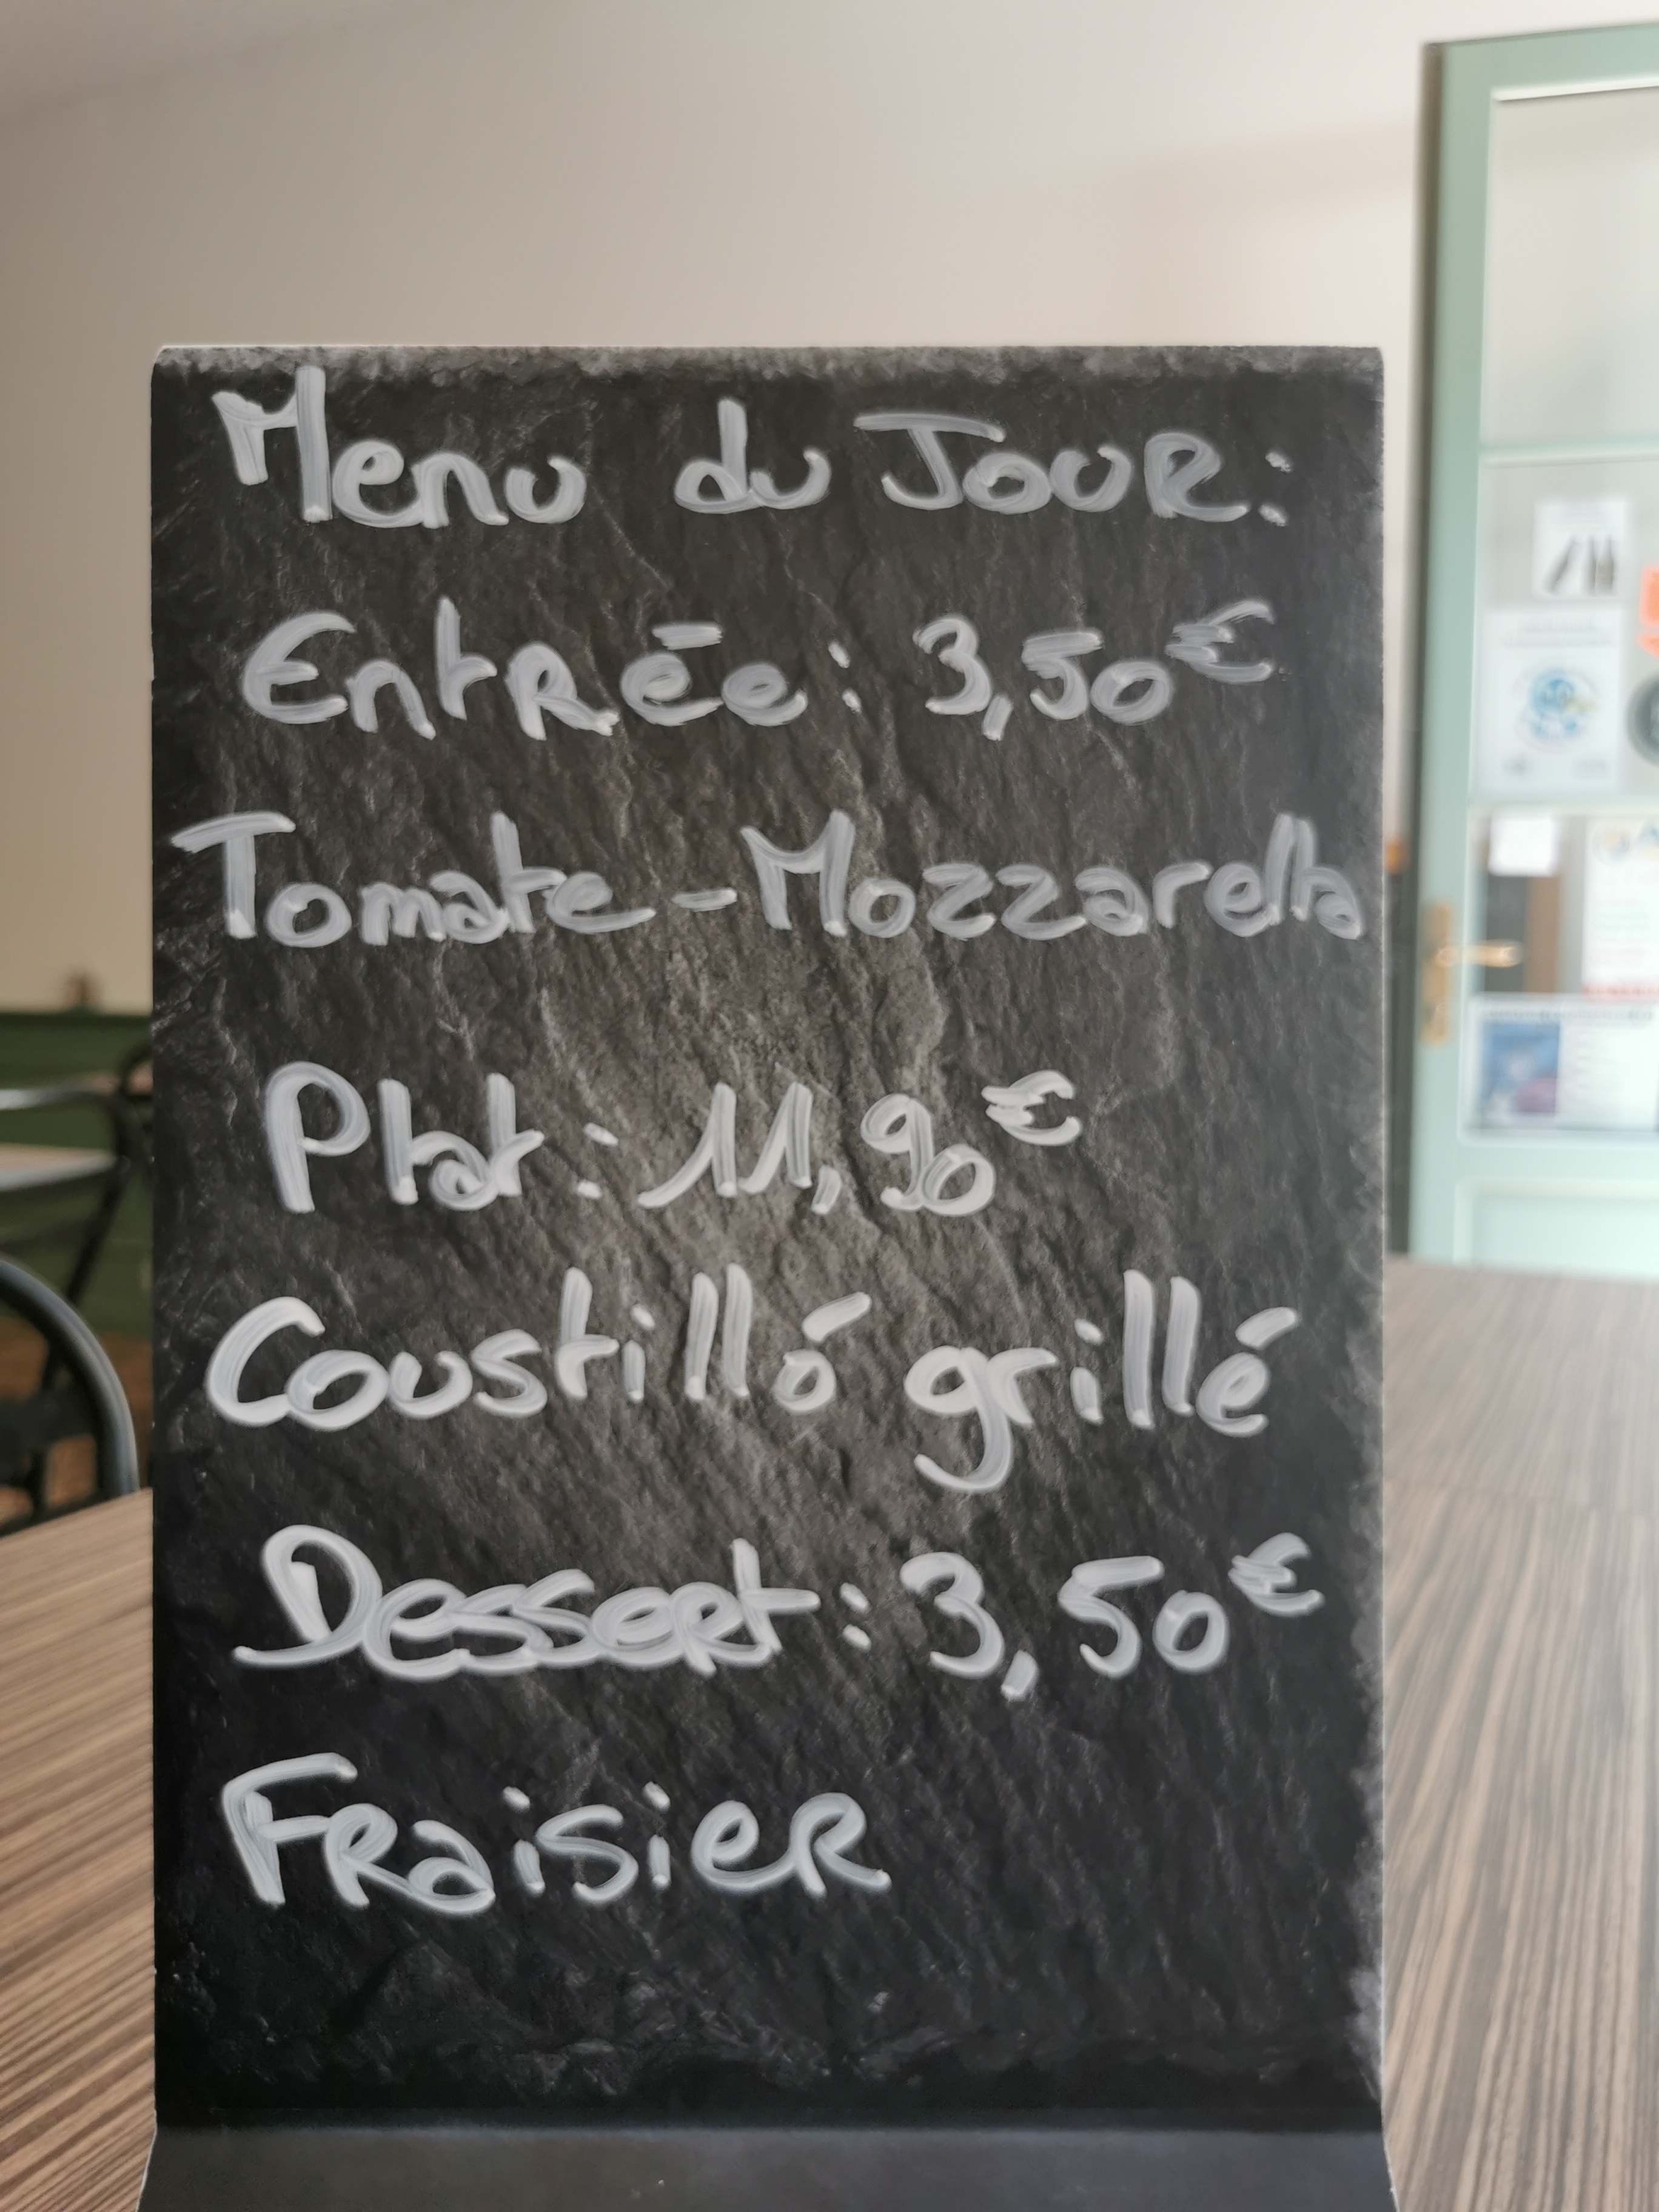 Menu du JOUR:
Entrée: 3,50€
Tomate-Mozzarella
Plat: 11,90€
Coustilló grillé
Dessert: 3,50€
Fraisier